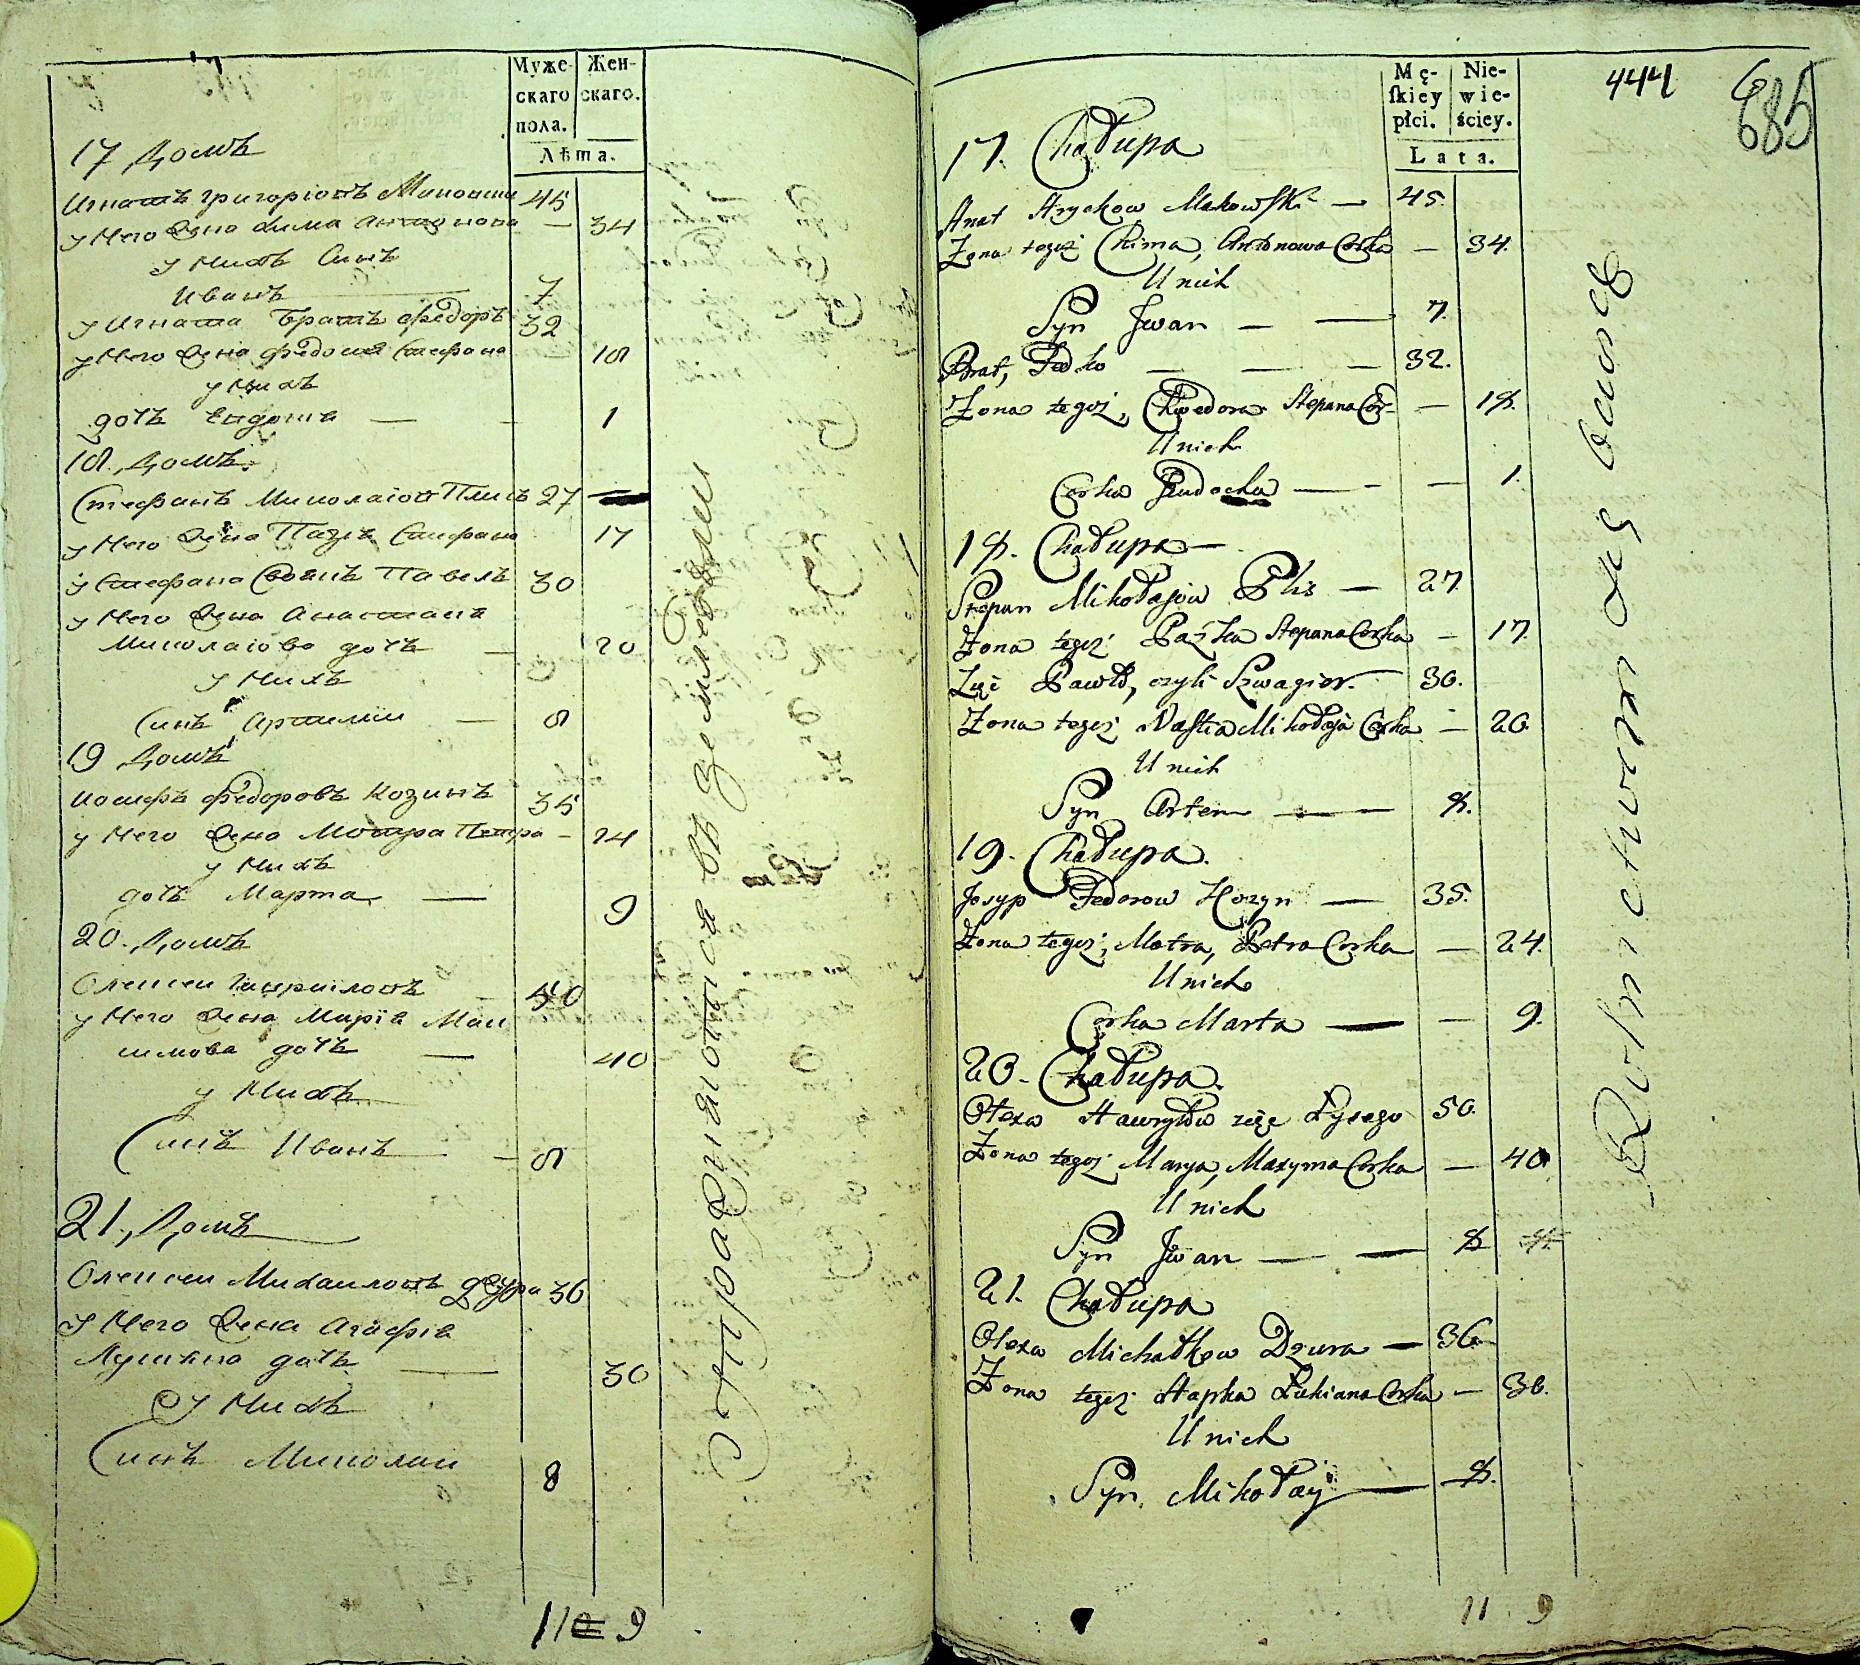 Муже-
скаго
пола.
Жен-
скаго.
Лѣта.
17 домъ
Игнатъ Григорїовъ 45
у Него Жена Хима Антонова — 34
у Нихъ Синъ
Иванъ 7
у Игната Братъ Федоръ 32
у Него Жена Федосия Стефана 18
у Нихъ
дочь Евдоха — 1
18. домъ.
Стефанъ Миколаїовъ Плисъ 27
у Него Жена Пазя Стефана 17
у Стефана Своякъ Павелъ 30
у Него Жена Анастасия
Миколаїова дочь — 20
у Нихъ
Синъ Артимїй — 8
19 домъ
Иосифъ Федоровъ Козинъ 35
у Него Жена Мотра Петра — 24
у Нихъ
дочь Марта — 9
20. домъ
Олексей Гаврїловъ 50
у Него Жена Марїя Мак
симова дочь — 40
у Нихъ
Синъ Иванъ — 8
21, домъ
Олексей Михайловъ Дзюра 36
у Него Жена Агафїя
Лукяна дочь — 30
у Нихъ
Синъ Миколай 8
11 9
упражняются въ земледелии
444
685
Mę-
skiey
płci.
Nie-
wie-
ściey.
Lata.
17. Chałupa
Hnat Hryckow Makowski — 45.
Zona tegoż Chima, Antonowa Corka — 34.
U nich
Syn Jwan — — 7.
Brat, Fedko — — — 32.
Zona tegoż, Chwedora Stepana Cor — 18.
U nich
Corka Jeudocha — - — 1.
18. Chałupa —
Stepan Mikołajów Plis — 27.
Zona tegoż Paźka Stepana Corka — 17.
Zięć Pawło, czyli Szwagier. — 30.
Zona tegoż Nastia Mikołaja Corka — 20.
U nich
Syn Artem — — 8.
19. Chałupa.
Josyp Fedorow Kozyn — 35.
Zona tegoż, Motra, Petra Corka — 24.
U nich
Corka Marta — — 9.
20. Chałupa.
Olexa Hawryłow zięć Łysego 50.
Zona tegoż Marya, Maxyma Corka — 40
U nich
Syn Jwan — — 8
21. Chałupa
Olexa Michałkow Dzura — 36
Zona tegoż Hapka Łukiana Corka — 30.
U nich
Syn. Mikołay — 8.
11 9
Rolnictwem się bawią